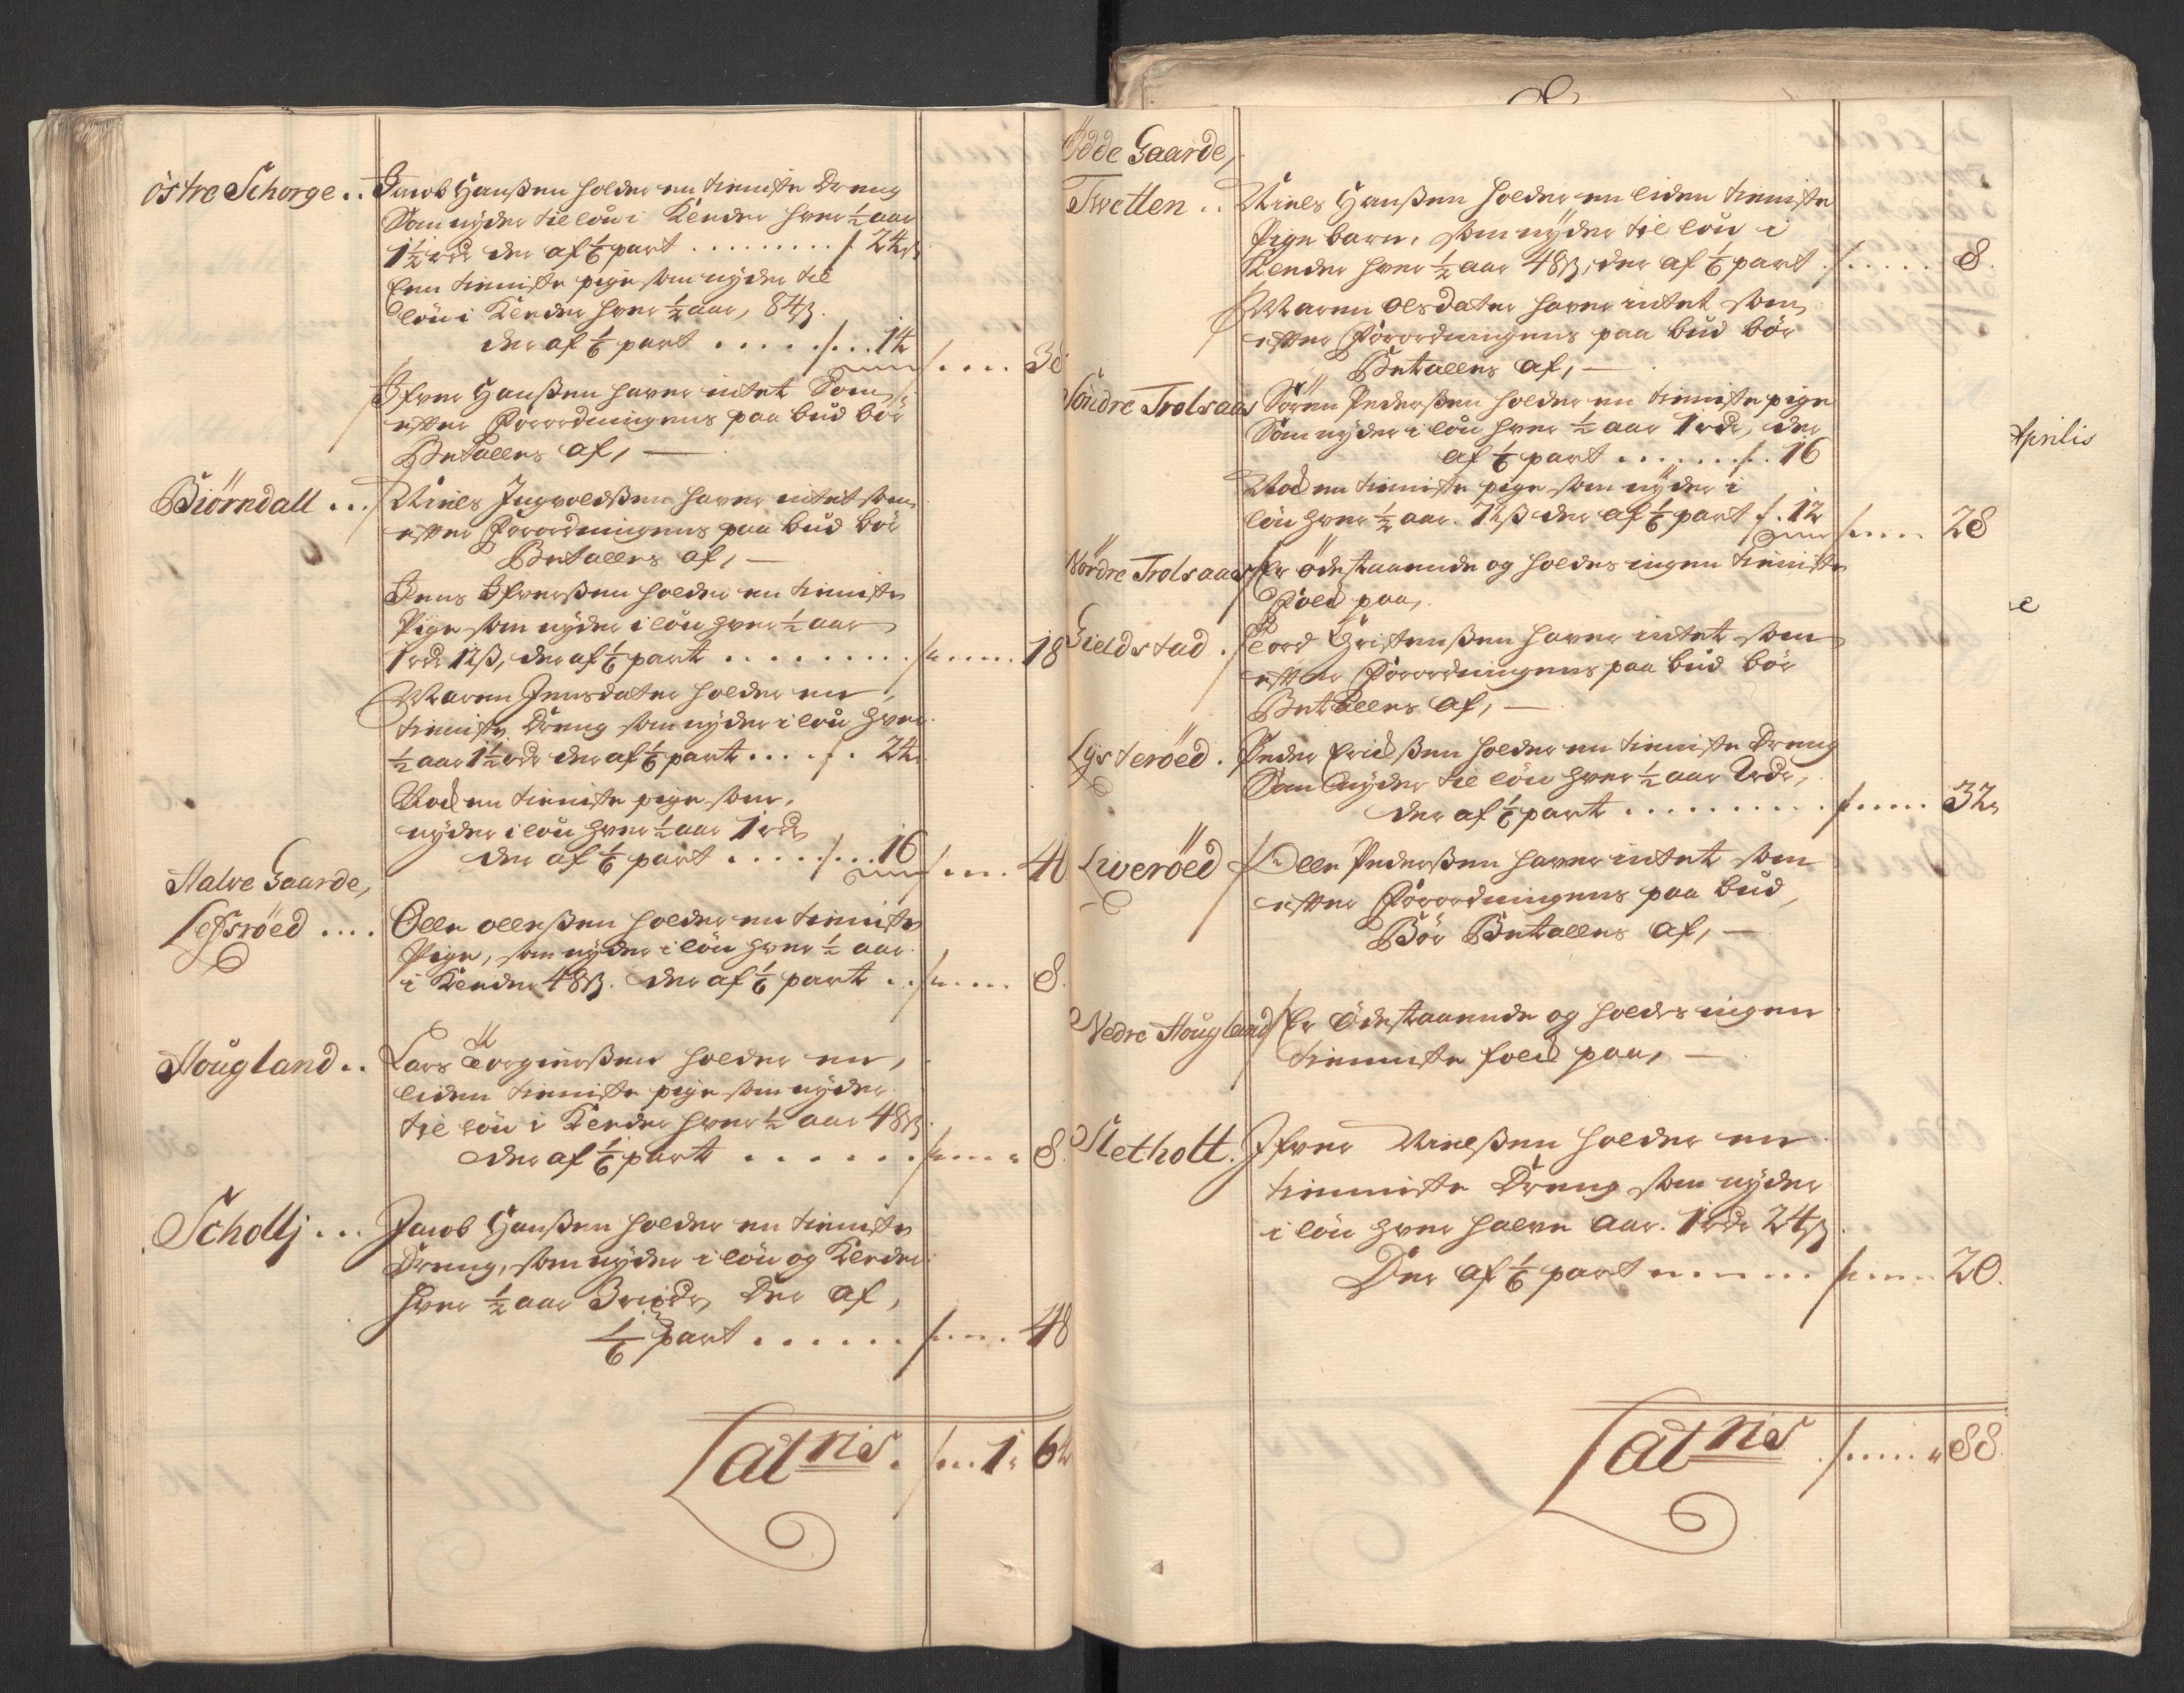 östre Schorge .. Jacob Hanßen holder en tieniste Dreng
Som nyder til lön i Klæder hver ½ aar
1½ rdr der af ⅙ part ......... / 24
Een tieniste pige som nyder til
lön i Klæder hver ½ aar, 84 ß.
der af ⅙ part ..... / ... 14
/ .... 38
Ifver Hanßen haver intet Som
efter Forordningens paa bud bör
Betalles af, —
Biörndall ... Niels Ingvoldßen haver intet som
efter Forordningens paa bud bör
Betalles af, —
Jens Ifverßen holder en tieniste
Pige som nyder i lön hver ½ aar
1 rdr 12 ß, der af ⅙ part ......... / .... 18
Maren Jensdater holder en
tieniste Dreng som nyder i lön hver
½ aar 1½ rdr der af ⅙ part .... / . 24
Nock en tieniste pige som,
nyder i lön hver ½ aar 1 rdr
der af ⅙ part ..... / ... 16
/ ... 40
Halve Gaarde,
Lefsröed .... Olle olleßen holder en tieniste
Pige, som nyder i lön hver ½ aar
i Klæder 48 ß. der af ⅙ part .. / .... 8.
Hougland .. Lars Torgierßen holder en,
liden tieniste pige som nyder
til lön i Klæder hver ½ aar 48 ß
der af ⅙ part ...... / .... 8.
Schollj ... Jacob Hanßen holder en tieniste
Dreng, som nyder i lön og Klæder
hver ½ aar 3 rixdr, der af,
⅙ part ...... / .... 48
Latris . / ... 1 . 64
Ödde Gaarde,
Twetten .. Niels Hanßen holder en liden tieniste
Pige barn, som nyder til lön i
Klæder hver ½ aar 48 ß, der af ⅙ part / ..... 8.
Maren Olsdater haver intet som
efter Forordningens paa bud bör
Betalles af, —
Söndre Trolsaas Sören Pederßen holder en tieniste pige
Som nyder i lön hver ½ aar 1 rdr, der
af ⅙ part ....... / . 16
Nock en tieniste pige som nyder i
lön hver ½ aar. 72 ß der af ⅙ part / . 12
/ .... 28
Nördre Trolsaas Er ödestaaende og holdes ingen tieniste
Folck paa,
Gieldstad . Tord Christenßen haver intet som
efter Forordningens paa bud bör
Betalles af, —
Lysteröed . Peder Erichßen holder en tieniste Dreng
Som nyder til lön hver ½ aar 2 rdr,
der af ⅙ part ......... / .... 32
Liveröed Olle Pederßen haver intet som
efter Forordningens paa bud,
Bör Betalles af, —
Nedre Hougland Er ödestaaende og holdes ingen
tienniste folck paa, —
Sletholt . Ifver Nielßen holder en
tienniste Dreng som nyder
i lön hver halve aar. 1 rdr 24 ß.
Der af ⅙ part ...... / .... 20.
Latris . / ..... 88.
Aprilis